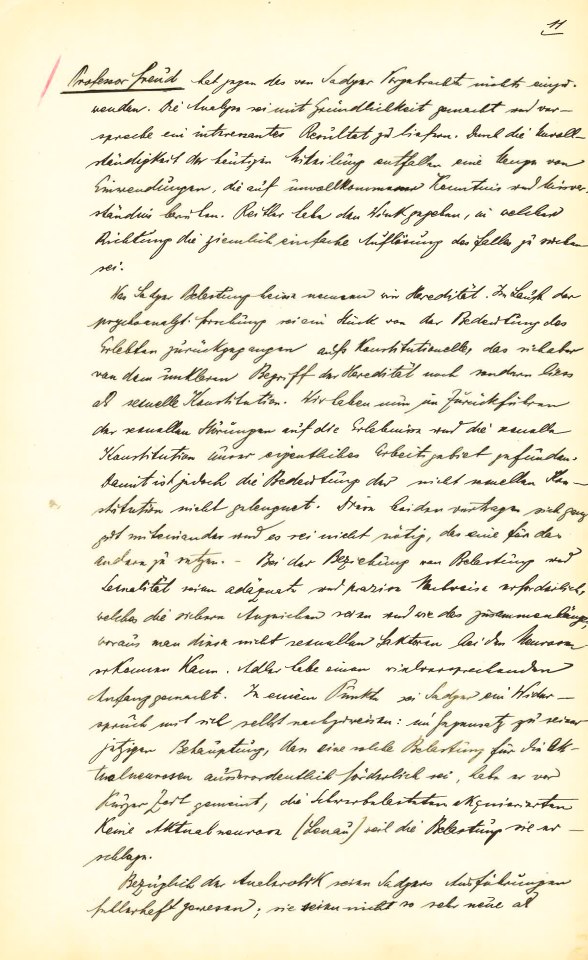 11
Professor Freud hat gegen das von Sadger Vorgebrachte nichts einzu-
wenden. Die Analyse sei mit Gründlichkeit gemacht und ver-
spreche ein interessantes Resultat zu liefern. Durch die Unvoll-
ständigkeit der heutigen Mitteilung entfallen eine Menge von
Einwendungen, die auf unvollkommener Kenntnis und Unver-
ständnis beruhen. Reitler habe den Wink gegeben, in welcher
Richtung die ziemlich einfache Auflösung des Falles zu suchen
sei.
Was Sadger Belastung heisse nennen wir Heredität. Im Laufe der
psychoanalyt. Forschung sei ein Stück von der Bedeutung des
Erlebten zurückgegangen aufs Konstitutionelle, das sich aber
von dem unklaren Begriff der Heredität noch sondern liess
als sexuelle Konstitution. Wir haben nun im Zurückführen
der sexuellen Störungen auf die Erlebnisse und die sexuelle
Konstitution unser eigentliches Arbeitsgebiet gefunden.
Damit ist jedoch die Bedeutung der nicht sexuellen Kon-
stitution nicht geleugnet. Diese beiden vertragen sich ganz
gut miteinander und es sei nicht nötig, das eine für das
andere zu setzen. - Bei der Beziehung von Belastung und
Sexualität seien adäquate und präzise Nachweise erforderlich,
welches die sichern Anzeichen seien und wie das zusammenhänge,
woraus man diese nicht sexuellen Faktoren bei den Neurosen
erkennen kann. Adler habe einen vielversprechenden
Anfang gemacht. In einem Punkte sei Sadger ein Wider-
spruch mit sich selbst nachzuweisen: im Gegensatz zu seiner
jetzigen Behauptung, dass eine solche Belastung für die Ak-
tualneurosen ausserordentlich förderlich sei, habe er vor
kurzer Zeit gemeint, die Schwerbelasteten akquirierten
keine Aktualneurose (Lenau) weil die Belastung sie er-
schlage.
Bezüglich der Analerotik seien Sadgers Ausführungen
fehlerhaft gewesen; sie seien nicht so sehr neue als